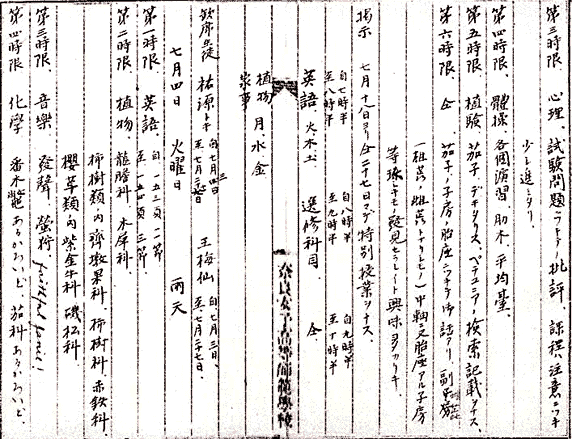 第三時限、心理、試験問題ニツキテノ批評 課程、注意ニツキ
少シ進ミタリ。
第四時限、體操、各個演習、肋木、平均臺。
第五時限、植驗、茄子、デギタリス、ペチユニア、検索記載ヲナス。
第六時限、仝 茄子ノ子房、胎座ニツキテ御話アリ
等
掲示 七月十八日ヨリ仝二十七日マデ特別授業ヲナス。
自七時半
至八時半
英語、火木土
自八時半
至九時半
選修科目、
自九時半
至十時半
仝
植物 月、水、金
家事
奈良女子高等師範學校
欠席生徒 祐源トキ 自七月四日
王梅仙 自七月三日、
至七月二十七日、
七月四日 火曜日 雨天
第一時限、英語、自一五三頁一節
至一五四頁三節
第二時限、植物、龍膽科、木犀科、
柿樹類ノ内 齊墩果科、柿樹科、赤鉄科、
櫻草類ノ内 紫金牛科 磯松科、
第三時限 音樂 發聲、螢狩、
第四時限 化學 番木鼈あるかろいど 茄科あるかろいど、